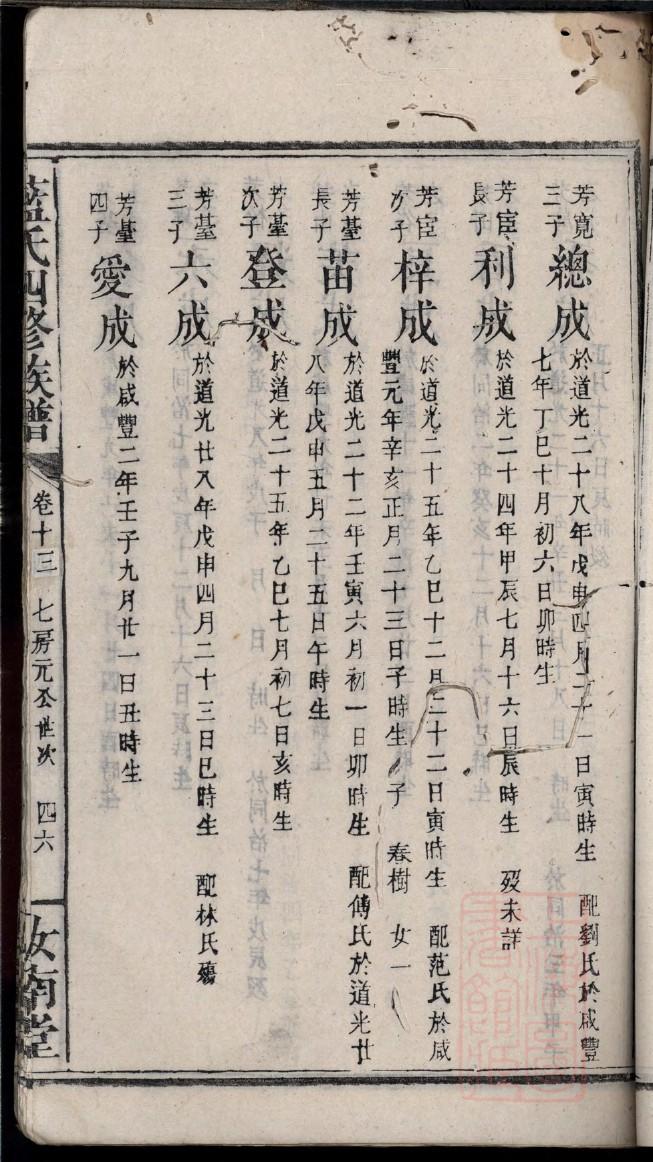 芳寬三子
總成
於道光二十八年戊申四月二十一日寅時生 配劉氏於咸豐
七年丁巳十月初六日卯時生
芳宦長子
利成
於道光二十四年甲辰七月十六日辰時生 歿未詳
芳宦次子
梓成
於道光二十五年乙巳十二月二十二日寅時生 配范氏於咸
豐元年辛亥正月二十三日子時生 子 春樹 女一
芳臺長子
苗成
於道光二十二年壬寅六月初一日卯時生 配傅氏於道光廿
八年戊申五月二十五日午時生
芳臺次子
登成
於道光二十五年乙巳七月初七日亥時生
芳臺三子
六成
於道光廿八年戊申四月二十三日巳時生 配林氏殤
芳臺四子
愛成
於咸豐二年壬子九月廿一日丑時生
藍氏四修族譜 卷十三 七房元公世次 四六 汝南堂